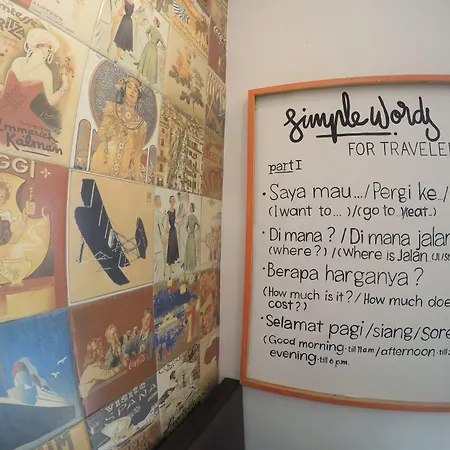 Emmerich
Kalman
GGI
simple words
FOR TRAVELER
part I
• Saya mau.../Pergi ke../
(I want to ...)/(go to)/(eat.)
• Di mana? / Di mana jalan
(where?) / (Where is Jalan
• Berapa harganya?
(How much is it? / How much does
cost?)
• Selamat pagi/siang/Sore
(Good morning · till 11am / afternoon · till
evening · till 6 p.m.